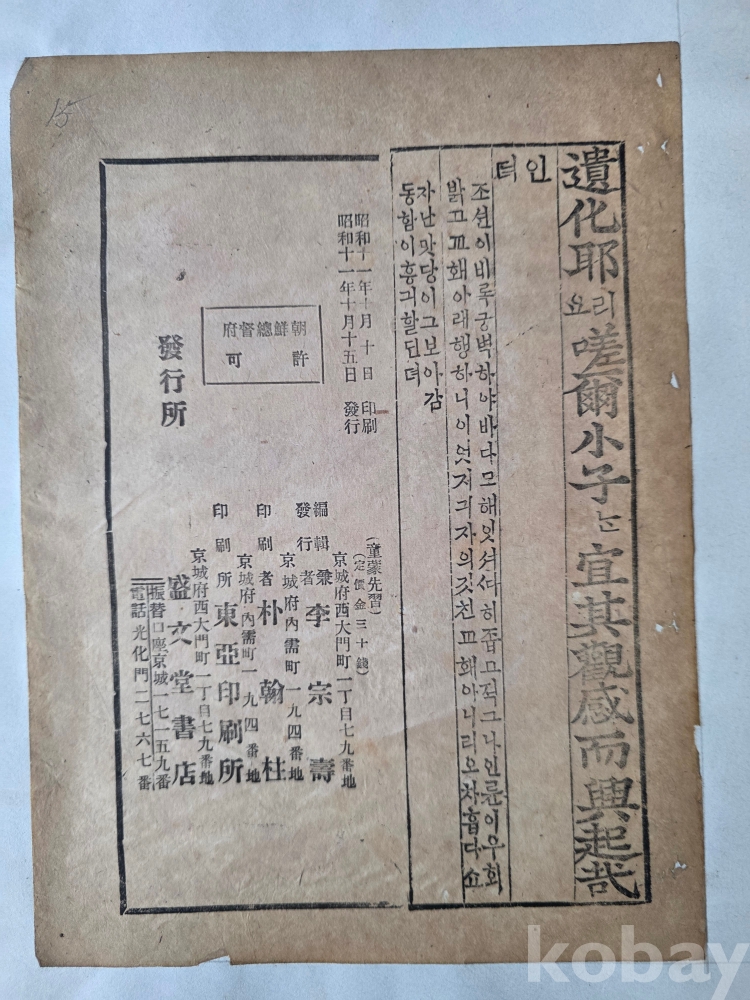 遺化耶리요嗟爾小子는宜其觀感而興起哉
인뎌
조션이비록궁벽하야바다모해잇셔
밝고교홰아래행하니이엇지긔자의깃친교홰아니리오차흡다쇼
자난맛당이그보아감
동함이흥긔할딘뎌
昭和十一年十月十日 印刷
昭和十一年十月十五日 發行
朝鮮總督府
許可
(童蒙先習)
(定價金三十錢)
京城府西大門町一丁目七九番地
編輯兼發行者 李宗壽
京城府內需町一九四番地
印刷者 朴翰柱
京城府內需町一九四番地
印刷所 東亞印刷所
京城府西大門町一丁目七九番地
發行所 盛文堂書店
振替口座京城一七一五九番
電話光化門二七六七番
15
kobay